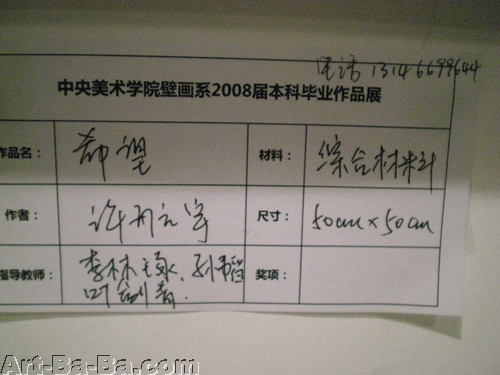 电话 13146699644
中央美术学院壁画系2008届本科毕业作品展
作品名： 却望 材料： 综合材料
作者： 许 尺寸： 50cm×50cm
指导教师： 李林琢.孙韬 奖项：
叶剑青.
Art-Ba-Ba.com